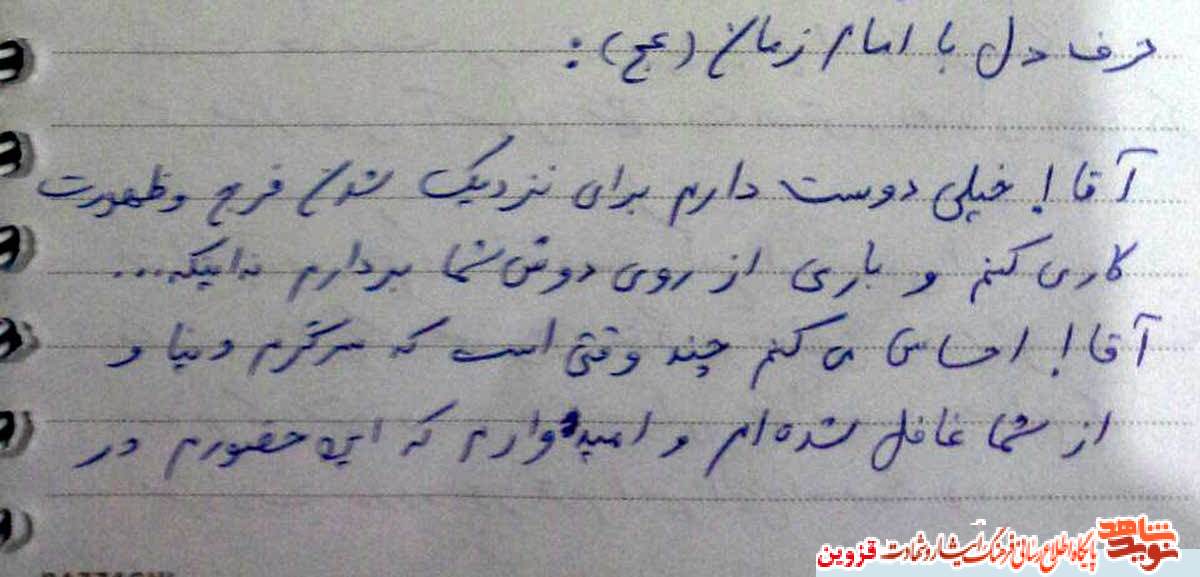 حرف دل با امام زمان (عج):
آقا! خیلی دوست دارم برای نزدیک شدن فرج و ظهورت
کاری کنم و باری از روی دوش شما بردارم نه اینکه...
آقا! احساس می کنم چند وقتی است که سرگرم دنیا و
از شما غافل شده ام و امیدوارم که این حضورم در
نوید شاهد
پایگاه اطلاع رسانی فرهنگ ایثار و شهادت قزوین